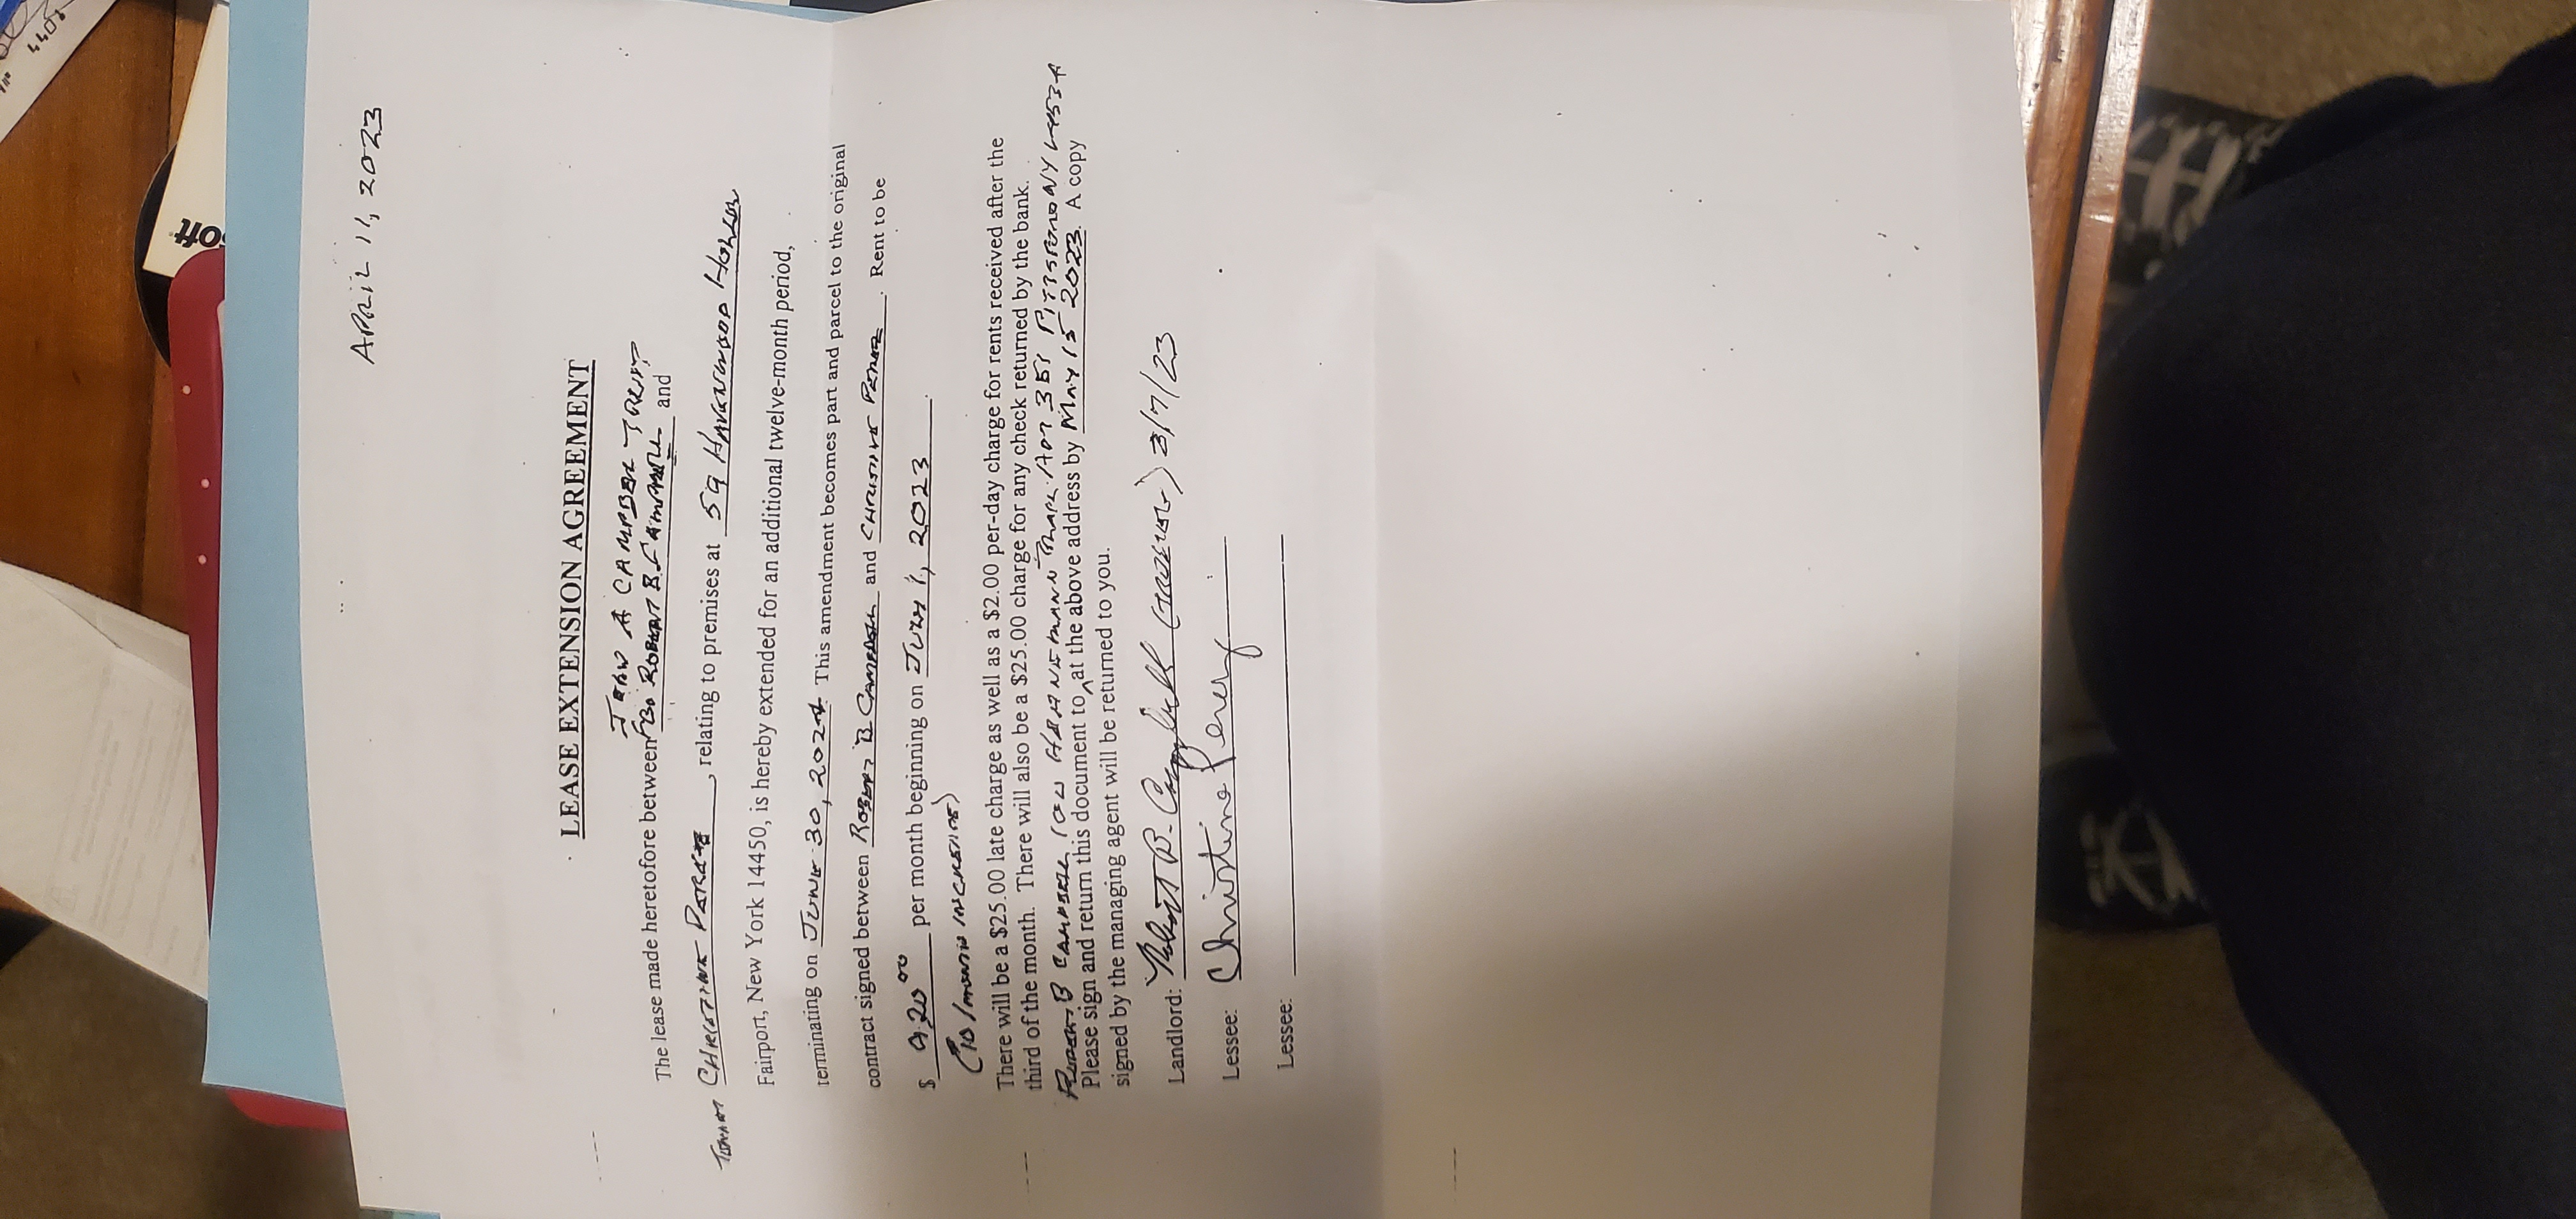 4401
oft
APRIL 11, 2023
LEASE EXTENSION AGREEMENT
JOHN A CAMPBELL TRUST
The lease made heretofore between FBO ROBERT B. CAMPBELL and
TENANT CHRISTINE PEREZ, relating to premises at 59 HAVENSWOOD HOLLOW
Fairport, New York 14450, is hereby extended for an additional twelve-month period,
terminating on JUNE 30, 2024. This amendment becomes part and parcel to the original
contract signed between ROBERT B CAMPBELL and CHRISTINE PEREZ. Rent to be
$ 920 00 per month beginning on JULY 1, 2023.
(10/MONTH INCREASE)
There will be a $25.00 late charge as well as a $2.00 per-day charge for rents received after the
third of the month. There will also be a $25.00 charge for any check returned by the bank.
ROBERT B CAMPBELL HAHNEMANN TRAIL APT 351 PITTSFORD NY 14534
Please sign and return this document to ^ at the above address by MAY 15 2023. A copy
signed by the managing agent will be returned to you.
Landlord: Robert B. Campbell (TRUSTEE) /7/23
Lessee: Christine Perez
Lessee: